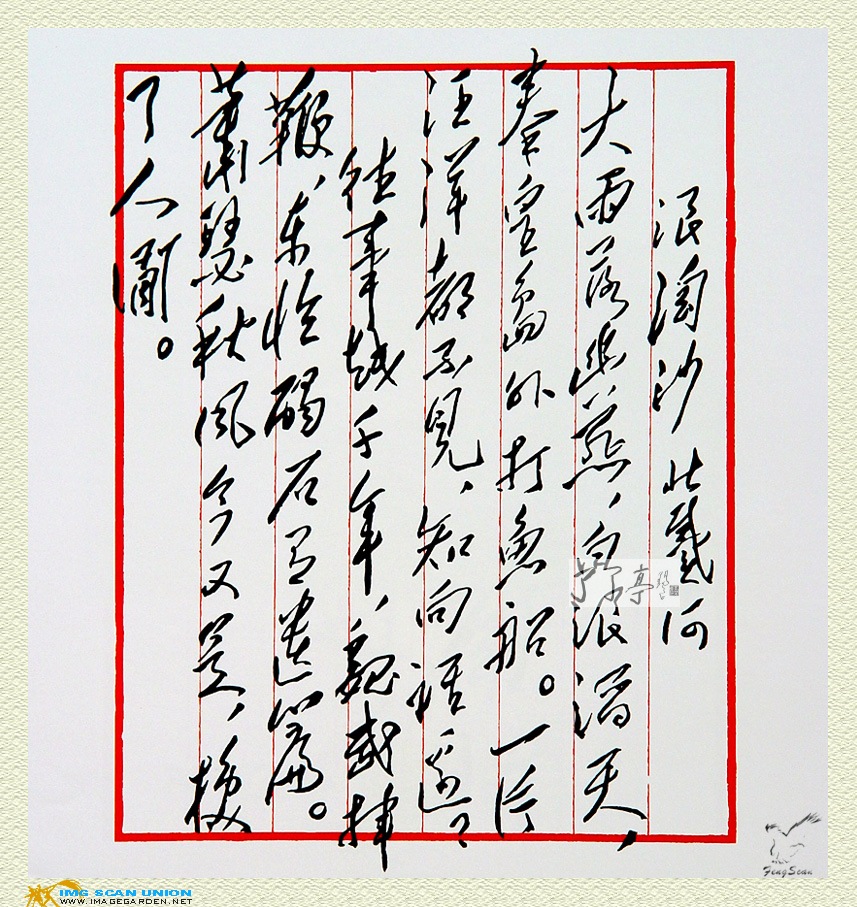 浪淘沙 北戴河
大雨落幽燕，白浪滔天，
秦皇島外打魚船。一片
汪洋都不見，知向誰邊？
往事越千年，魏武揮
鞭，東臨碣石有遺篇。
蕭瑟秋風今又是，換
了人間。
FengScan
IMG SCAN UNION
WWW.IMAGEGARDEN.NET